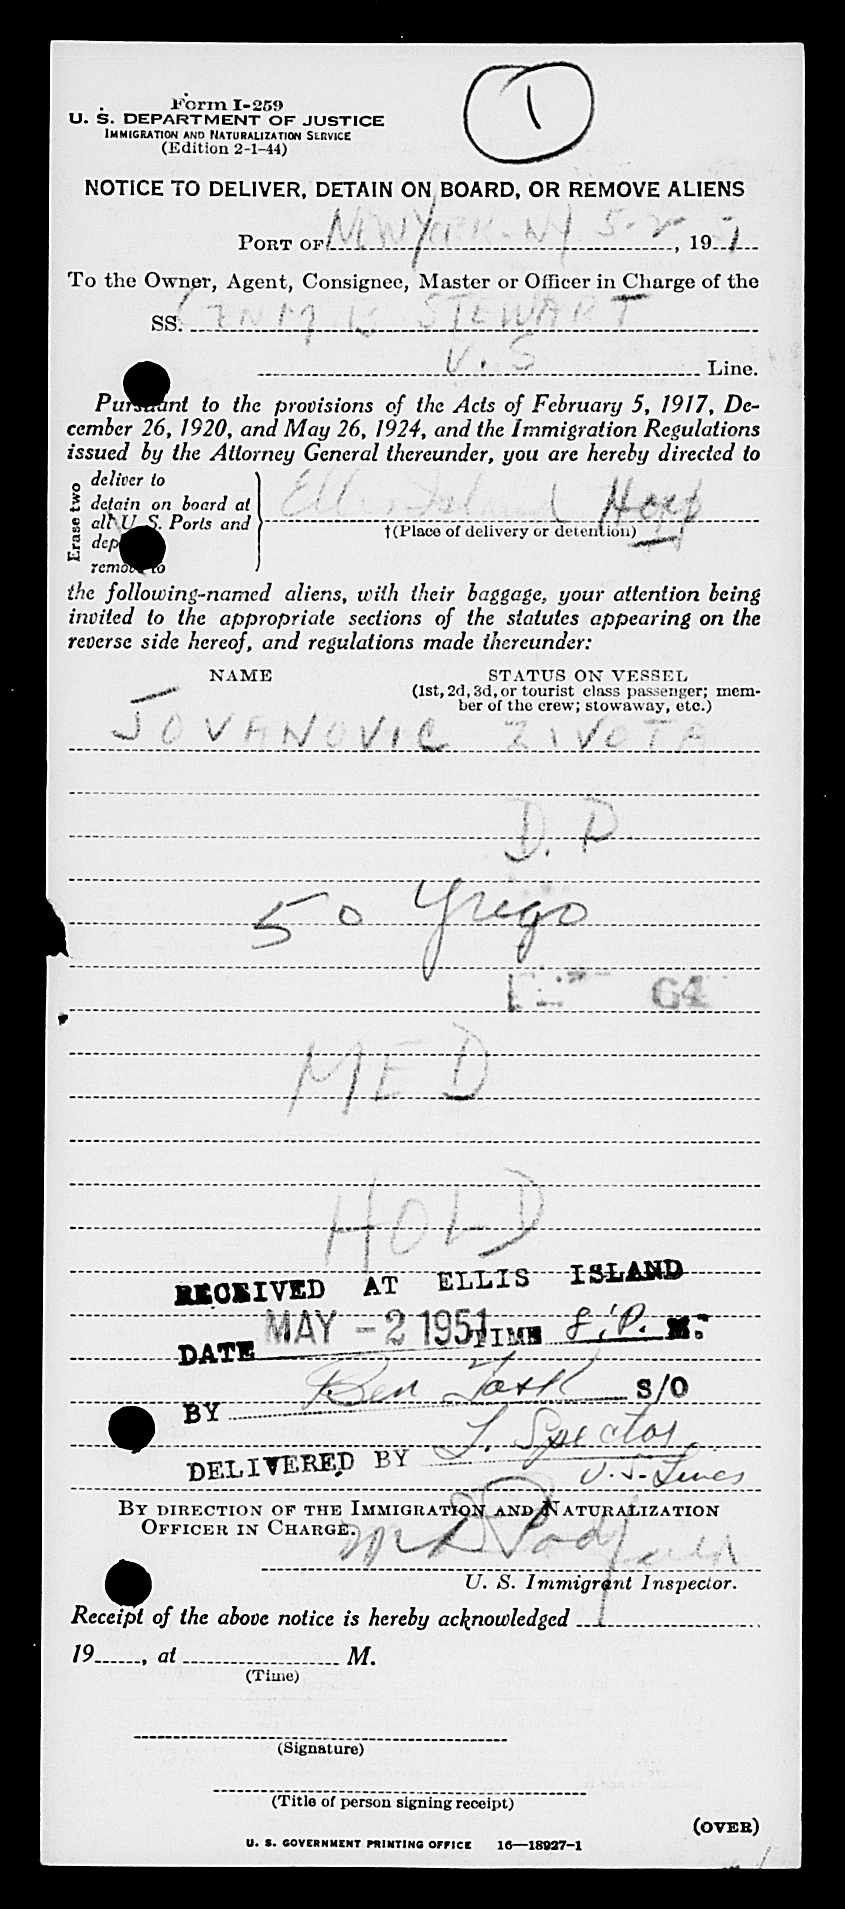 1
Form I-259
U. S. DEPARTMENT OF JUSTICE
IMMIGRATION AND NATURALIZATION SERVICE
(Edition 2-1-44)
NOTICE TO DELIVER, DETAIN ON BOARD, OR REMOVE ALIENS
PORT OF NEW YORK-NY 5-2-, 1951
To the Owner, Agent, Consignee, Master or Officer in Charge of the
SS. STEWART
U.S Line.
Pursuant to the provisions of the Acts of February 5, 1917, De-
cember 26, 1920, and May 26, 1924, and the Immigration Regulations
issued by the Attorney General thereunder, you are hereby directed to
Erase two
deliver to
detain on board at
all U. S. Ports and
remove to
Ellis Island Hosp
†(Place of delivery or detention)
the following-named aliens, with their baggage, your attention being
invited to the appropriate sections of the statutes appearing on the
reverse side hereof, and regulations made thereunder:
NAME STATUS ON VESSEL
(1st, 2d, 3d, or tourist class passenger; mem-
ber of the crew; stowaway, etc.)
JOVANOVIC ZIVOTA
D.P.
50 Yugo
64
MED
HOLD
RECEIVED AT ELLIS ISLAND
DATE MAY -2 1951 TIME 8 P. M.
BY Ben S/O
DELIVERED BY Spector
U.S. Lines
BY DIRECTION OF THE IMMIGRATION AND NATURALIZATION
OFFICER IN CHARGE.
U. S. Immigrant Inspector.
Receipt of the above notice is hereby acknowledged
19, at M.
(Time)
(Signature)
(Title of person signing receipt)
(OVER)
U. S. GOVERNMENT PRINTING OFFICE 16—18927-1